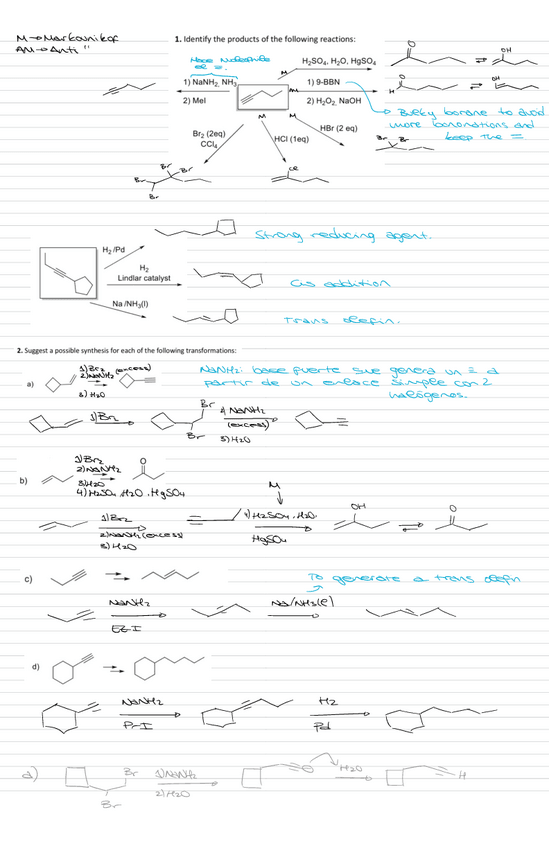 M → Markovnikof
AM → Anti "
1. Identify the products of the following reactions:
1) NaNH₂, NH₃
2) MeI
H₂SO₄, H₂O, HgSO₄
M
AM
1) 9-BBN
2) H₂O₂, NaOH
O
OH
H
O
OH
→ Bulky borane to avoid
more boronations and
keep the =
M
M
Br₂ (2eq)
CCl₄
HCl (1eq)
HBr (2 eq)
Br Br
Br
Br
Br
Br
Cl
H₂ /Pd
Strong reducing agent.
H₂
Lindlar catalyst
Cis addition
Na /NH₃(l)
Trans olefin.
2. Suggest a possible synthesis for each of the following transformations:
a)
1) Br₂
2) NaNH₂ (excess)
3) H₂O
NaNH₂: base fuerte que genera un ≡ a
partir de un enlace simple con 2
halógenos.
1) Br₂
Br
Br
2) NaNH₂
(excess)
3) H₂O
b)
1) Br₂
2) NaNH₂
3) H₂O
4) H₂SO₄, H₂O, HgSO₄
O
M
1) Br₂
2) NaNH₂ (excess)
3) H₂O
4) H₂SO₄, H₂O
HgSO₄
OH
O
c)
To generate a trans olefin
NaNH₂
Et-I
Na/NH₃(l)
d)
NaNH₂
Pr-I
H₂
Pd
a)
Br
Br
1) NaNH₂
2) H₂O
H₂O
H